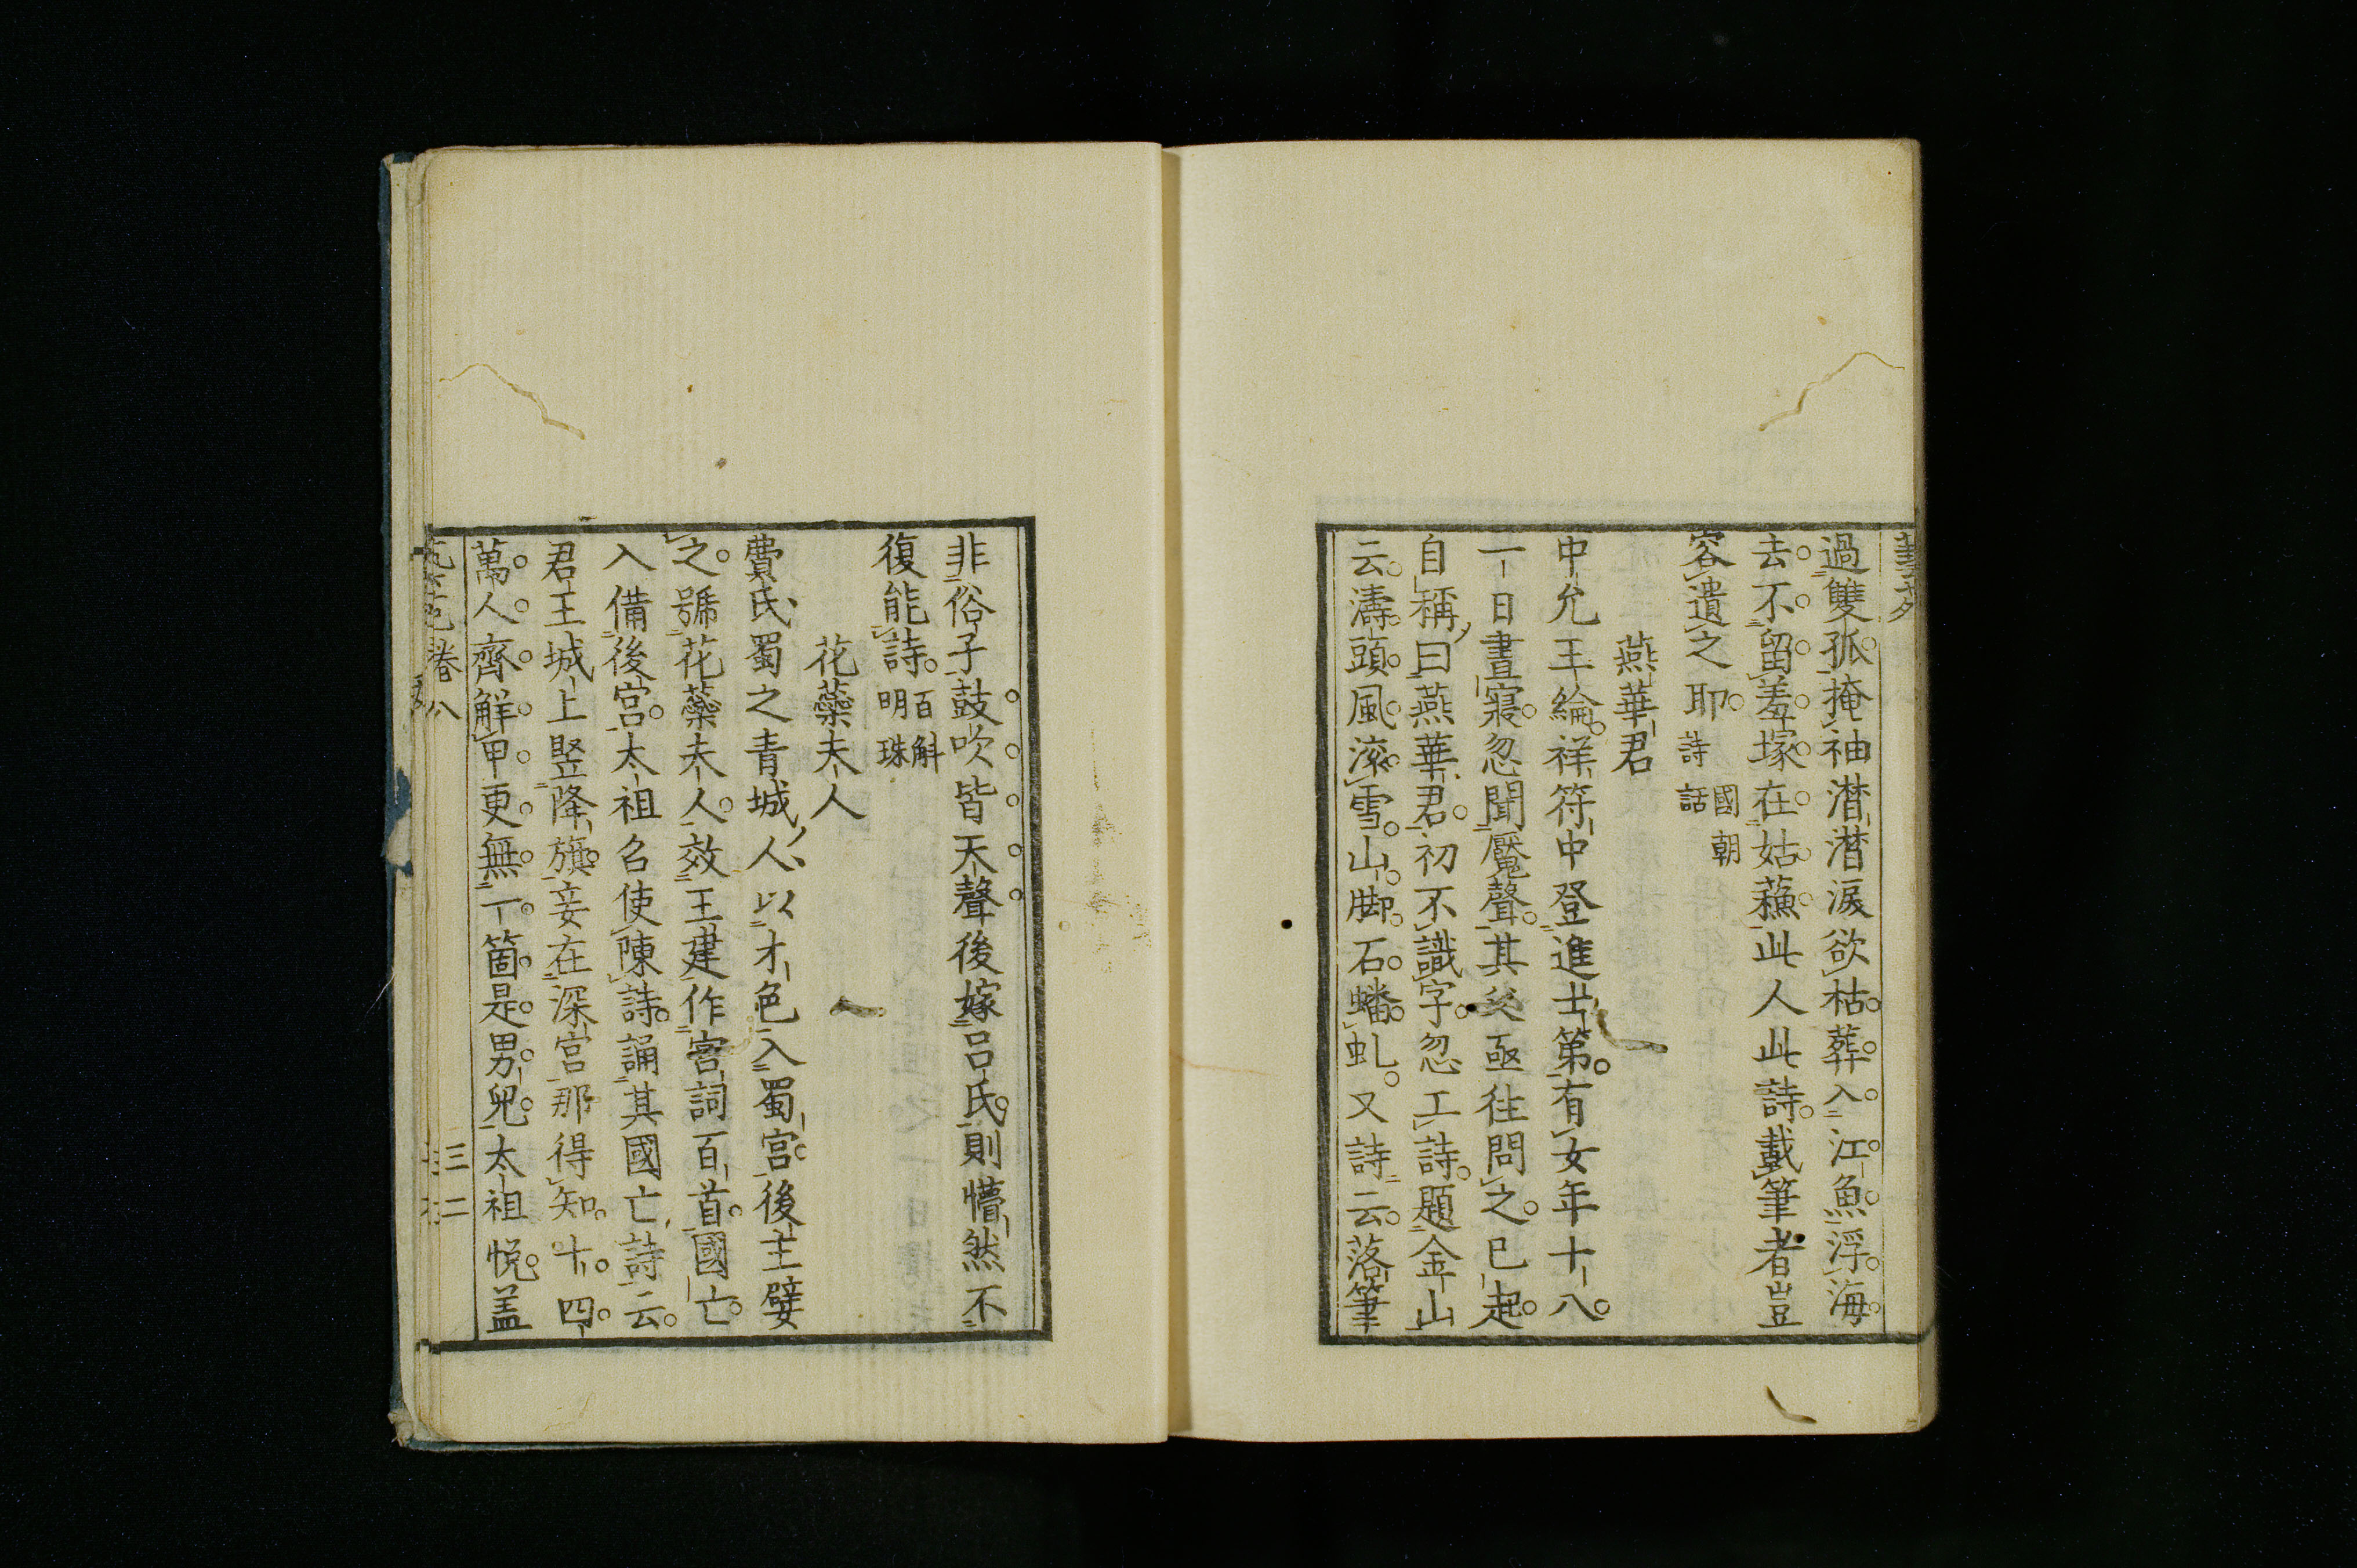 過雙孤掩袖潸潸淚欲枯葬入江魚浮海
去不留羞塚在姑蘇此人此詩戴筆者豈
容遺之耶 國朝詩話
燕華君
中允王綸祥符中登進士第有女年十八
一日晝寢忽聞魘聲其父亟往問之已起
自稱曰燕華君初不識字忽工詩題金山
云濤頭風滾雪山脚石蟠虬又詩云落筆
非俗子鼓吹皆天聲後嫁呂氏則懵然不
復能詩 百斛明珠
花蘂夫人
費氏蜀之青城人以才色入蜀宮後主嬖
之號花蘂夫人效王建作宮詞百首國亡
入備後宮太祖召使陳詩誦其國亡詩云
君王城上竪降旗妾在深宮那得知十四
萬人齊解甲更無一箇是男兒太祖悅盖
卷八
三二